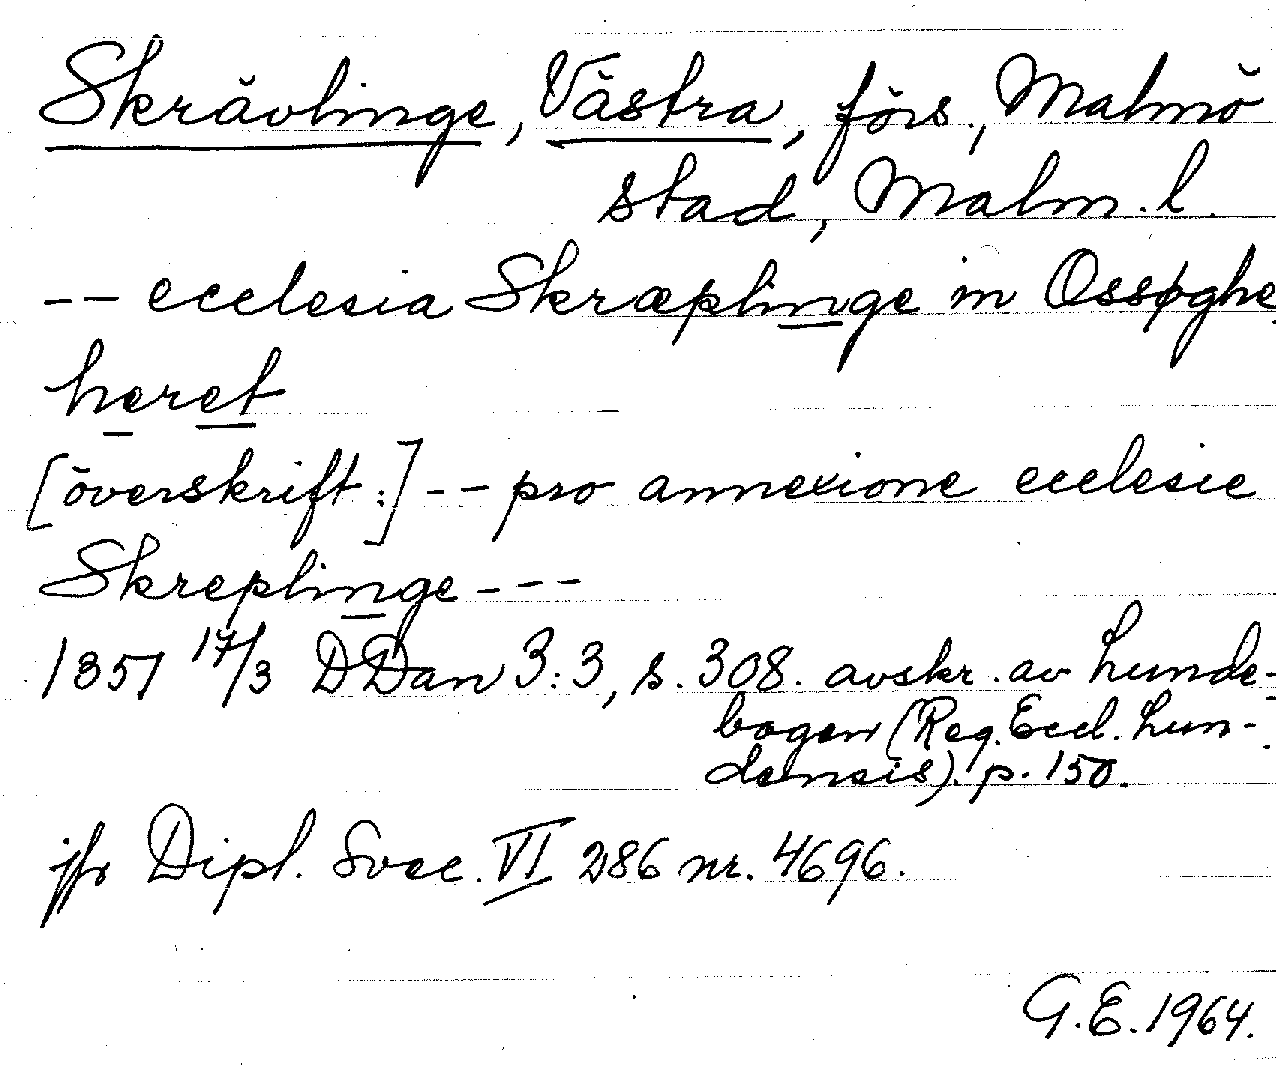 Skrävlinge, Västra, förs., Malmö
stad, Malm. l.
-- ecclesia Skræplinge in Ossøghe
heret
[överskrift:] -- pro annexione ecclesie
Skreplinge ---
1351 17/3 DDan 3:3, s. 308. avskr. av Lunde-
bogen (Reg. Eccl. Lun-
densis). p. 150.
jfr Dipl. Svec. VI 286 nr. 4696.
G.E. 1964.